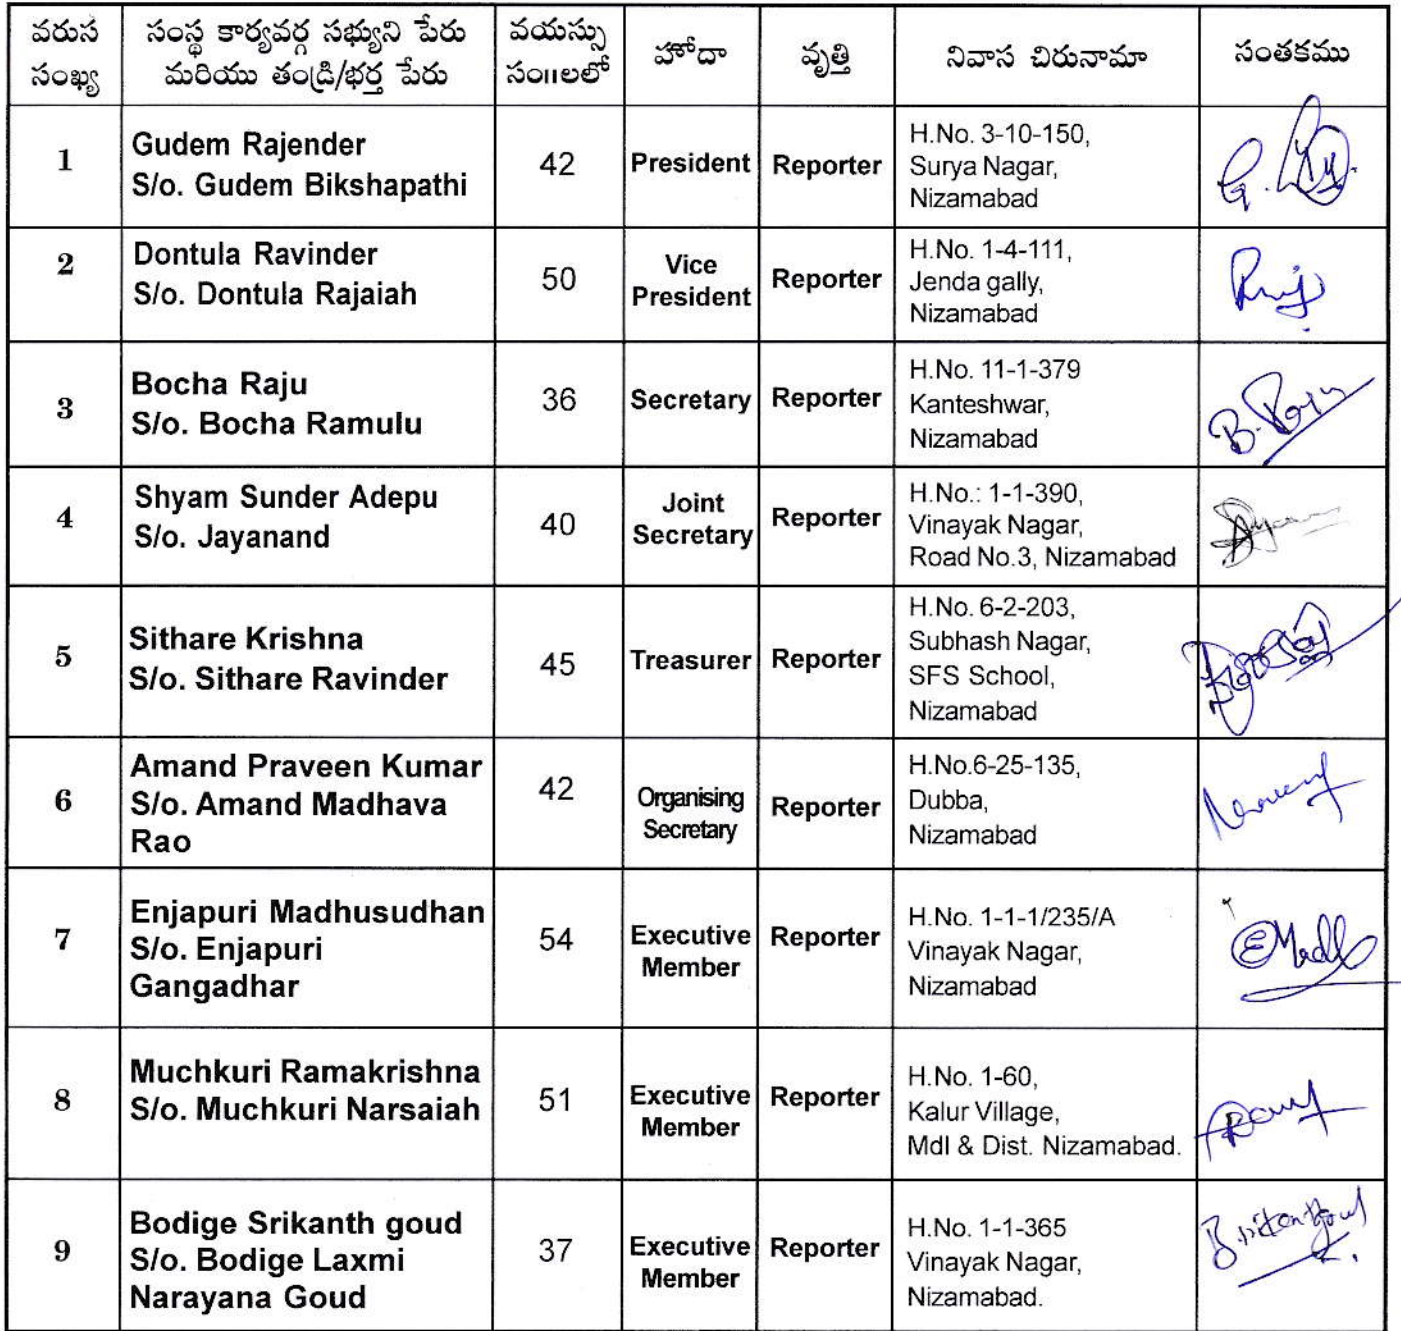 వరుస సంఖ్య
సంస్థ కార్యవర్గ సభ్యుని పేరు మరియు తండ్రి/భర్త పేరు
వయస్సు సం॥లలో
హోదా
వృత్తి
నివాస చిరునామా
సంతకము
1
Gudem Rajender
S/o. Gudem Bikshapathi
42
President
Reporter
H.No. 3-10-150,
Surya Nagar,
Nizamabad
2
Dontula Ravinder
S/o. Dontula Rajaiah
50
Vice
President
Reporter
H.No. 1-4-111,
Jenda gally,
Nizamabad
3
Bocha Raju
S/o. Bocha Ramulu
36
Secretary
Reporter
H.No. 11-1-379
Kanteshwar,
Nizamabad
B. Raju
4
Shyam Sunder Adepu
S/o. Jayanand
40
Joint
Secretary
Reporter
H.No.: 1-1-390,
Vinayak Nagar,
Road No.3, Nizamabad
5
Sithare Krishna
S/o. Sithare Ravinder
45
Treasurer
Reporter
H.No. 6-2-203,
Subhash Nagar,
SFS School,
Nizamabad
6
Amand Praveen Kumar
S/o. Amand Madhava
Rao
42
Organising
Secretary
Reporter
H.No.6-25-135,
Dubba,
Nizamabad
7
Enjapuri Madhusudhan
S/o. Enjapuri
Gangadhar
54
Executive
Member
Reporter
H.No. 1-1-1/235/A
Vinayak Nagar,
Nizamabad
8
Muchkuri Ramakrishna
S/o. Muchkuri Narsaiah
51
Executive
Member
Reporter
H.No. 1-60,
Kalur Village,
Mdl & Dist. Nizamabad.
9
Bodige Srikanth goud
S/o. Bodige Laxmi
Narayana Goud
37
Executive
Member
Reporter
H.No. 1-1-365
Vinayak Nagar,
Nizamabad.